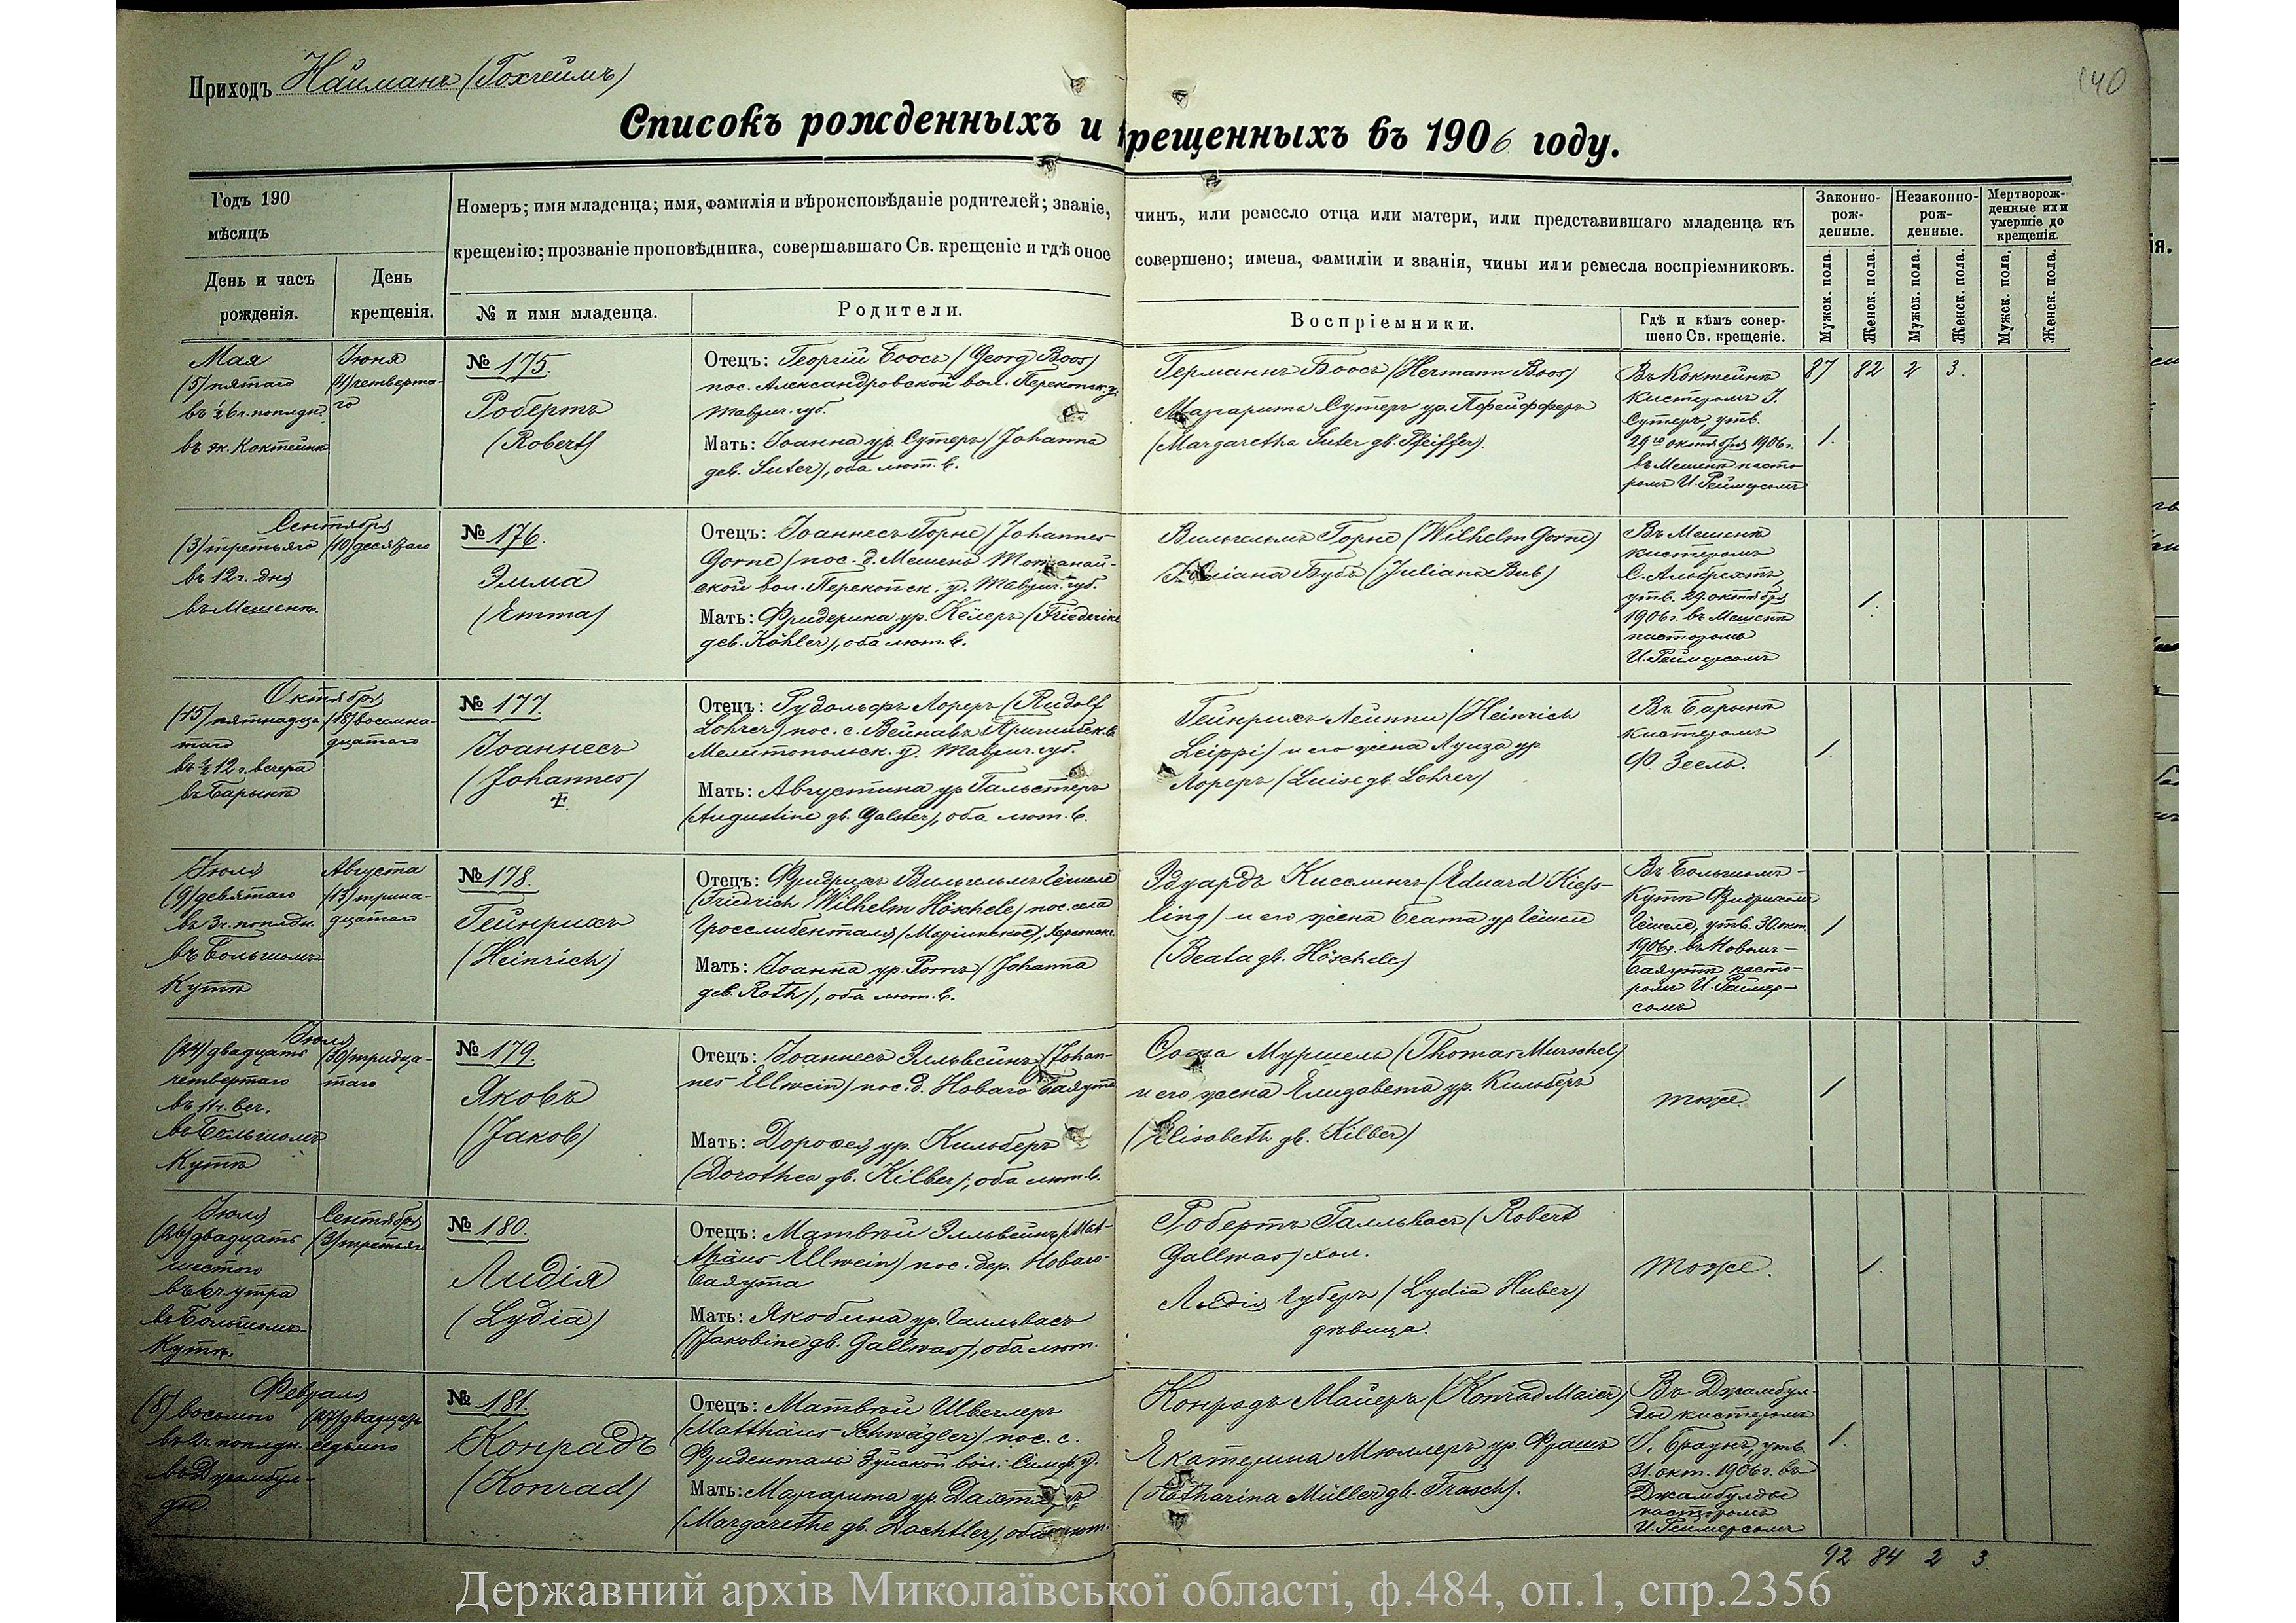 Приходъ Найманъ (Гохгеймъ)
140
Списокъ рожденныхъ и крещенныхъ въ 1906 году.
Годъ 190
мѣсяцъ
День и часъ
рожденія.
День
крещенія.
Номеръ; имя младенца; имя, фамилія и вѣроисповѣданіе родителей; званіе, чинъ, или ремесло отца или матери, или представившаго младенца къ
крещенію; прозваніе проповѣдника, совершавшаго Св. крещеніе и гдѣ оное совершено; имена, фамиліи и званія, чины или ремесла воспріемниковъ.
№ и имя младенца.
Родители.
Воспріемники.
Гдѣ и кѣмъ совер-
шено Св. крещеніе.
Законно-
рож-
денные.
Незаконно-
рож-
денные.
Мертворож-
денные или
умершіе до
крещенія.
Мужск. пола.
Женск. пола.
Мужск. пола.
Женск. пола.
Мужск. пола.
Женск. пола.
Мая
(5) пятаго
въ ½ 6 ч. поплдн.
въ эк. Коктейнъ
Іюня
(4) четверта-
го
№ 175.
Робертъ
(Robert)
Отецъ: Георгій Боосъ (Georg Boos)
пос. Александровской вол. Перекопск. у.
Таврич. губ.
Мать: Іоанна ур. Сутеръ (Johanna
геб. Suter), оба лют. в.
Германнъ Боосъ (Hermann Boos)
Маргарита Сутеръ ур. Пфейфферъ
(Margaretha Suter гв. Pfeiffer).
Въ Коктейнѣ
кистеромъ І.
Сутеръ, утв.
29го октября 1906 г.
въ Мешенѣ пасто-
ромъ И. Реймерсомъ
87 82 2 3.
1.
Сентября
(3) третьяго
въ 12 ч. дня
въ Мешенѣ.
(10) десятаго
№ 176.
Эмма
(Emma)
Отецъ: Іоаннесъ Горне (Johannes
Gorne) пос. д. Мешень
ской вол. Перекопск. у. Таврич. губ.
Мать: Фридерика ур. Келеръ (Friederike
геб. Köhler), оба лют. в.
Вильгельмъ Горне (Wilhelm Gorne)
Юліана Бубъ (Juliana Bub)
Въ Мешенѣ
кистеромъ
С. Альбрехтъ,
утв. 29. октября
1906 г. въ Мешенѣ
пасторомъ
И. Реймерсомъ
1.
Октября
(15) пятнадца-
таго
въ ½ 12 ч. вечера
въ Барынѣ
(18) восемна-
дцатаго
№ 177.
Іоаннесъ
(Johannes)
Отецъ: Рудольфъ Лореръ (Rudolf
Lohrer) пос. с. Вейнавъ Пришибск. в.
Мелитопольск. у. Таврич. губ.
Мать: Августина ур. Гальстеръ
(Augustine гв. Galster), оба лют. в.
Гейнрихъ Лейппи (Heinrich
Leippi) и его жена Луиза ур.
Лореръ (Luise гв. Lohrer)
Въ Барынѣ
кистеромъ
Ф. Зеель.
1.
Іюля
(9) девятаго
въ 3 ч. поплдн.
въ Большомъ
Кутѣ
Августа
(13) трина-
дцатаго
№ 178.
Гейнрихъ
(Heinrich)
Отецъ: Фридрихъ Вильгельмъ Гёшеле
(Friedrich Wilhelm Höschele) пос. села
Гросслибенталя (Маріинское), Херсонск.
Мать: Іоанна ур. Ротъ (Johanna
геб. Roth), оба лют. в.
Эдуардъ Кисслингъ (Eduard Kiess-
ling) и его жена Беата ур. Гёшеле
(Beata гв. Höschele)
Въ Большомъ-
Кутѣ Фридрихомъ
Гёшеле, утв. 30. окт.
1906 г. въ Новомъ-
Баяутѣ пасто-
ромъ И. Реймер-
сомъ
1
Іюля
(24) двадцать
четвертаго
въ 11 ч. веч.
въ Большомъ
Кутѣ
(30) тридца-
таго
№ 179.
Яковъ
(Jakob)
Отецъ: Іоаннесъ Эльвейнъ (Johan-
nes Ellwein) пос. д. Новаго Баяута
Мать: Доротея ур. Кильберъ
(Dorothea гв. Kilber), оба лют. в.
Ѳома Муршель (Thomas Murschel)
и его жена Елизавета ур. Кильберъ
(Elisabeth гв. Kilber)
тоже
1
Іюля
(26) двадцать
шестого
въ 6 ч. утра
въ Большомъ-
Кутѣ.
Сентября
(3) третьяго
№ 180.
Лидія
(Lydia)
Отецъ: Матвѣй Эльвейнъ (Mat-
thäus Ellwein) пос. дер. Новаго-
Баяута
Мать: Якобина ур. Галльвасъ
(Jakobine гв. Gallwas), оба лют.
Робертъ Галльвасъ (Robert
Gallwas) хол.
Лидія Губеръ (Lydia Huber)
дѣвица.
тоже.
1.
Февраля
(8) восьмого
въ 2 ч. поплдн.
въ Джамбул-
ды.
(27) двадцать
седьмого
№ 181.
Конрадъ
(Konrad)
Отецъ: Матвѣй Швеглеръ
(Matthäus Schwägler) пос. с.
Фриденталь Зуйской вол. Симф. у.
Мать: Маргарита ур. Дахтлеръ
(Margarethe гв. Dachtler), оба лют.
Конрадъ Майеръ (Konrad Maier)
Екатерина Мюллеръ ур. Фрашъ
(Katharina Müller гв. Frasch).
Въ Джамбул-
ды кистеромъ
І. Браунъ, утв.
31. окт. 1906 г. въ
Джамбулды
пасторомъ
И. Реймерсомъ
1.
92 84 2 3
Державний архів Миколаївської області, ф.484, оп.1, спр.2356